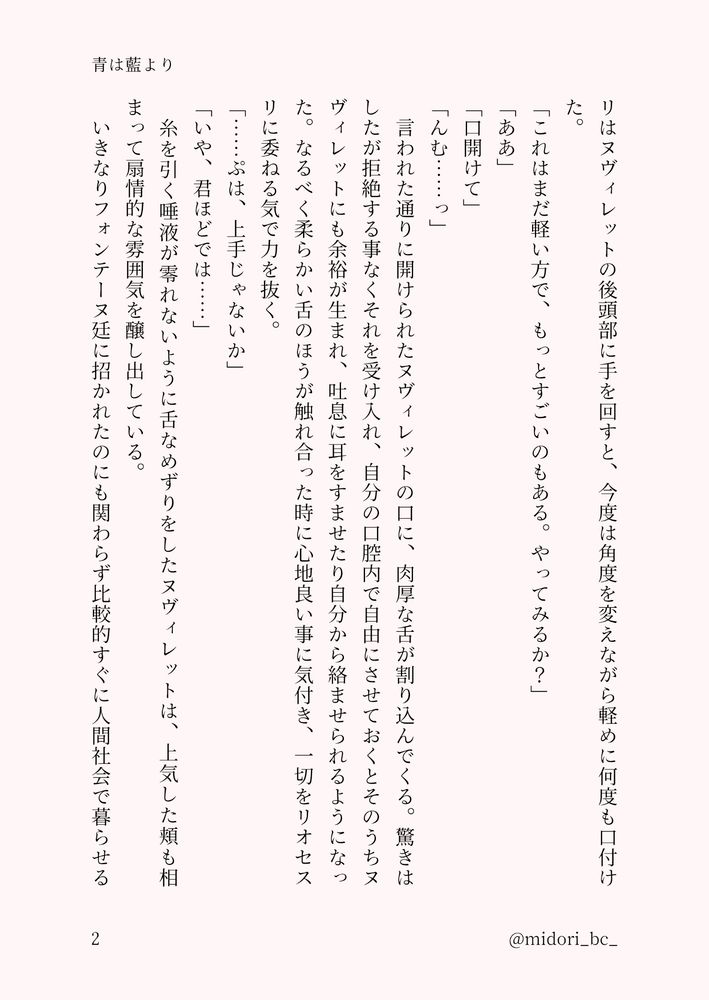 青は藍より
リはヌヴィレットの後頭部に手を回すと、今度は角度を変えながら軽めに何度も口付け
た。
「これはまだ軽い方で、もっとすごいのもある。やってみるか？」
「ああ」
「口開けて」
「んむ……っ」
　言われた通りに開けられたヌヴィレットの口に、肉厚な舌が割り込んでくる。驚きは
したが拒絶する事なくそれを受け入れ、自分の口腔内で自由にさせておくとそのうちヌ
ヴィレットにも余裕が生まれ、吐息に耳をすませたり自分から絡ませられるようになっ
た。なるべく柔らかい舌のほうが触れ合った時に心地良い事に気付き、一切をリオセス
リに委ねる気で力を抜く。
「……ぷは、上手じゃないか」
「いや、君ほどでは……」
　糸を引く唾液が零れないように舌なめずりをしたヌヴィレットは、上気した頬も相
まって扇情的な雰囲気を醸し出している。
　いきなりフォンテーヌ廷に招かれたのにも関わらず比較的すぐに人間社会で暮らせる
2
@midori_bc_